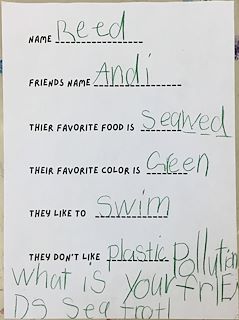 NAME Reed
FRIENDS NAME Andi
THIER FAVORITE FOOD IS Seawed
THEIR FAVORITE COLOR IS Green
THEY LIKE TO Swim
THEY DON'T LIKE plastic Pollution
What is Your friE
Ds Sea